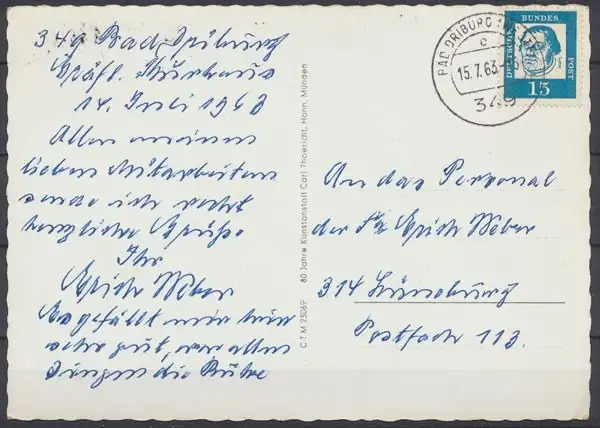 349 Bad Driburg
Gräfl. Kurhaus
14. Juli 1963
Allen meinen
lieben Mitarbeitern
sende ich recht
herzliche Grüße
Ihr
Erich Weber
Es gefällt mir hier
sehr gut, vor allen
Dingen die Ruhe
80 Jahre Kunstanstalt Carl Thoericht, Hann. Münden
C T M 75069
BAD DRIBURG
c
15.7.63
349
DEUTSCHE
BUNDES
POST
15
An das Personal
der Fa Erich Weber
314 Lüneburg
Postfach 113.